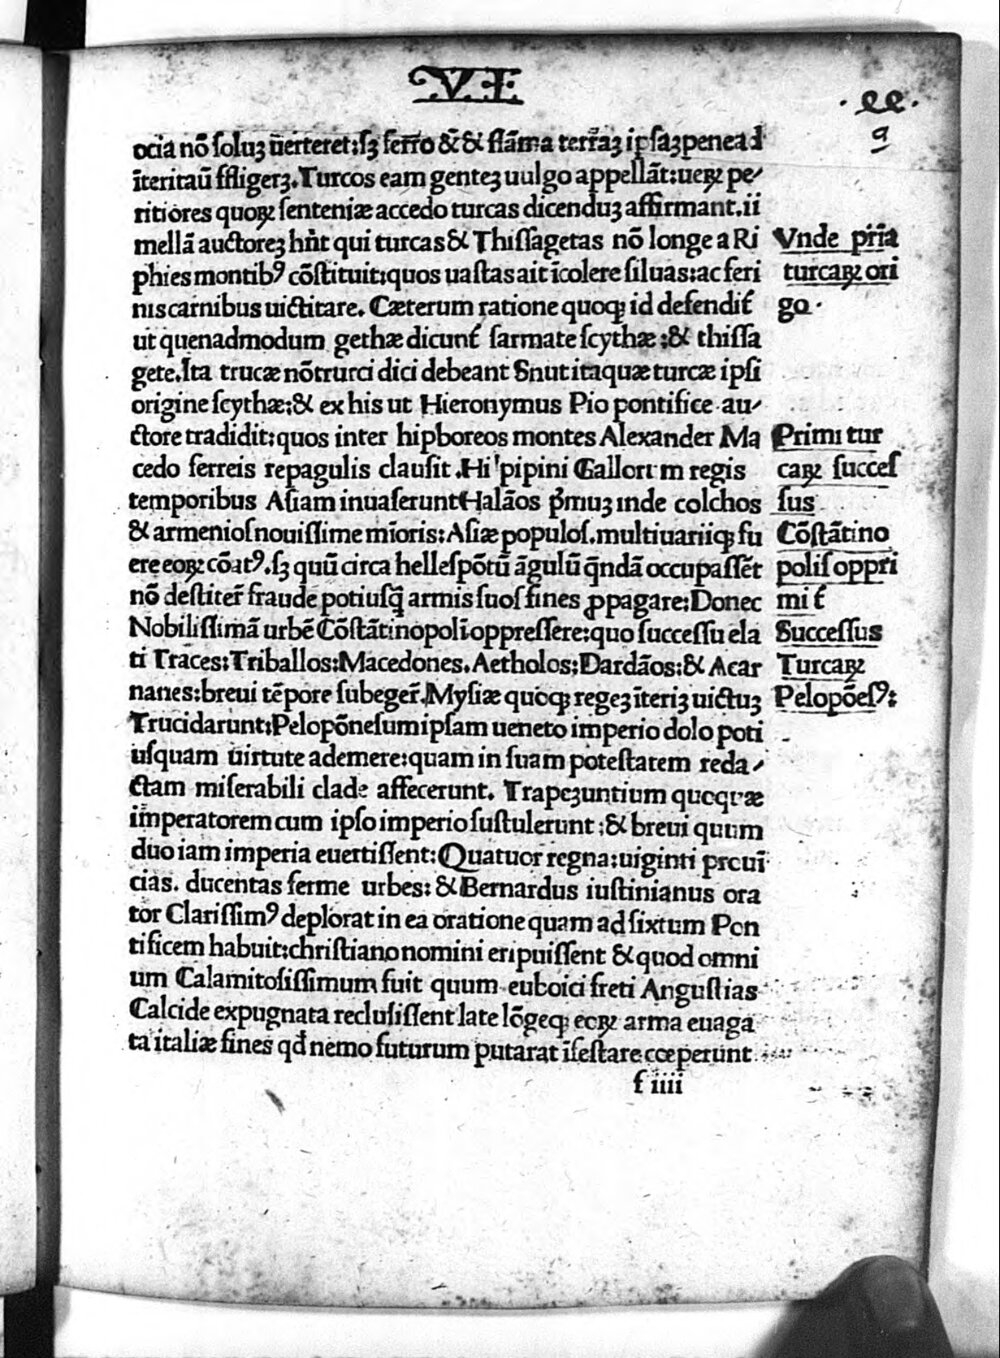 VI
.ee.
9
ocia nō soluꝫ ūerteret:sꝫ ferro &̄ & flāma terraꝫ ipsaꝫ penead
īteritaū ffligerꝫ.Turcos eam genteꝫ uulgo appellāt:ueꝝ pe⸗
ritiores quoꝝ sententiæ accedo turcas dicenduꝫ affirmant.ii
mellā auctoreꝫ hn̄t qui turcas & Thissagetas nō longe a Ri
phies montibꝰ cōstituit:quos uastas ait īcolere siluas:ac feri
nis carnibus uictitare. Cæterum ratione quoqꝫ id defendit̄
ut quenadmodum gethæ dicunt̄ sarmate scythæ :& thissa
gete.Ita trucæ nō trurci dici debeant Snut itaquæ turcæ ipsi
origine scythæ:& ex his ut Hieronymus Pio pontifice au⸗
ctore tradidit:quos inter hipboreos montes Alexander Ma
cedo ferreis repagulis clausit .Hi pipini Gallorum regis
temporibus Asiam inuaserunt Halāos p̄muꝫ inde colchos
& armenios nouissime mīoris: Asiæ populos. multiuariiqꝫ fu
ere eoꝝ cōatꝰ.sꝫ quū circa hellespōtū āgulū q̄ndā occupassēt
nō destiter̄ fraude potiusq̄ armis suos fines ꝓpagare:Donec
Nobilissimā urbē Cōstātinopolī oppressere:quo successu ela
ti Traces:Triballos:Macedones.Aetholos:Dardāos:& Acar
nanes:breui tēpore subeger̄.Mysiæ quoqꝫ regeꝫ īteriꝫ uictuꝫ
Trucidarunt:Pelopōnesum ipsam ueneto imperio dolo poti
usquam uirtute ademere:quam in suam potestatem reda⸗
ctam miserabili clade affecerunt. Trapeꝫuntium quoquæ
imperatorem cum ipso imperio sustulerunt :& breui quum
duo iam imperia euertissent:Quatuor regna:uiginti prouī
cias. ducentas ferme urbes: & Bernardus iustinianus ora
tor Clarissimꝰ deplorat in ea oratione quam ad sixtum Pon
tificem habuit:christiano nomini eripuissent & quod omni
um Calamitosissimum fuit quum euboici freti Angustias
Calcide expugnata reclusissent late lōgeqꝫ eoꝝ arma euaga
ta italiæ fines qđ nemo futurum putarat īfestare cœperunt
f iiii
Vnde pria
turcaꝝ ori
go.
Primi tur
caꝝ succes
sus
Cōstātino
polis oppri
mit̄
Successus
Turcaꝝ
Pelopōesꝰ: